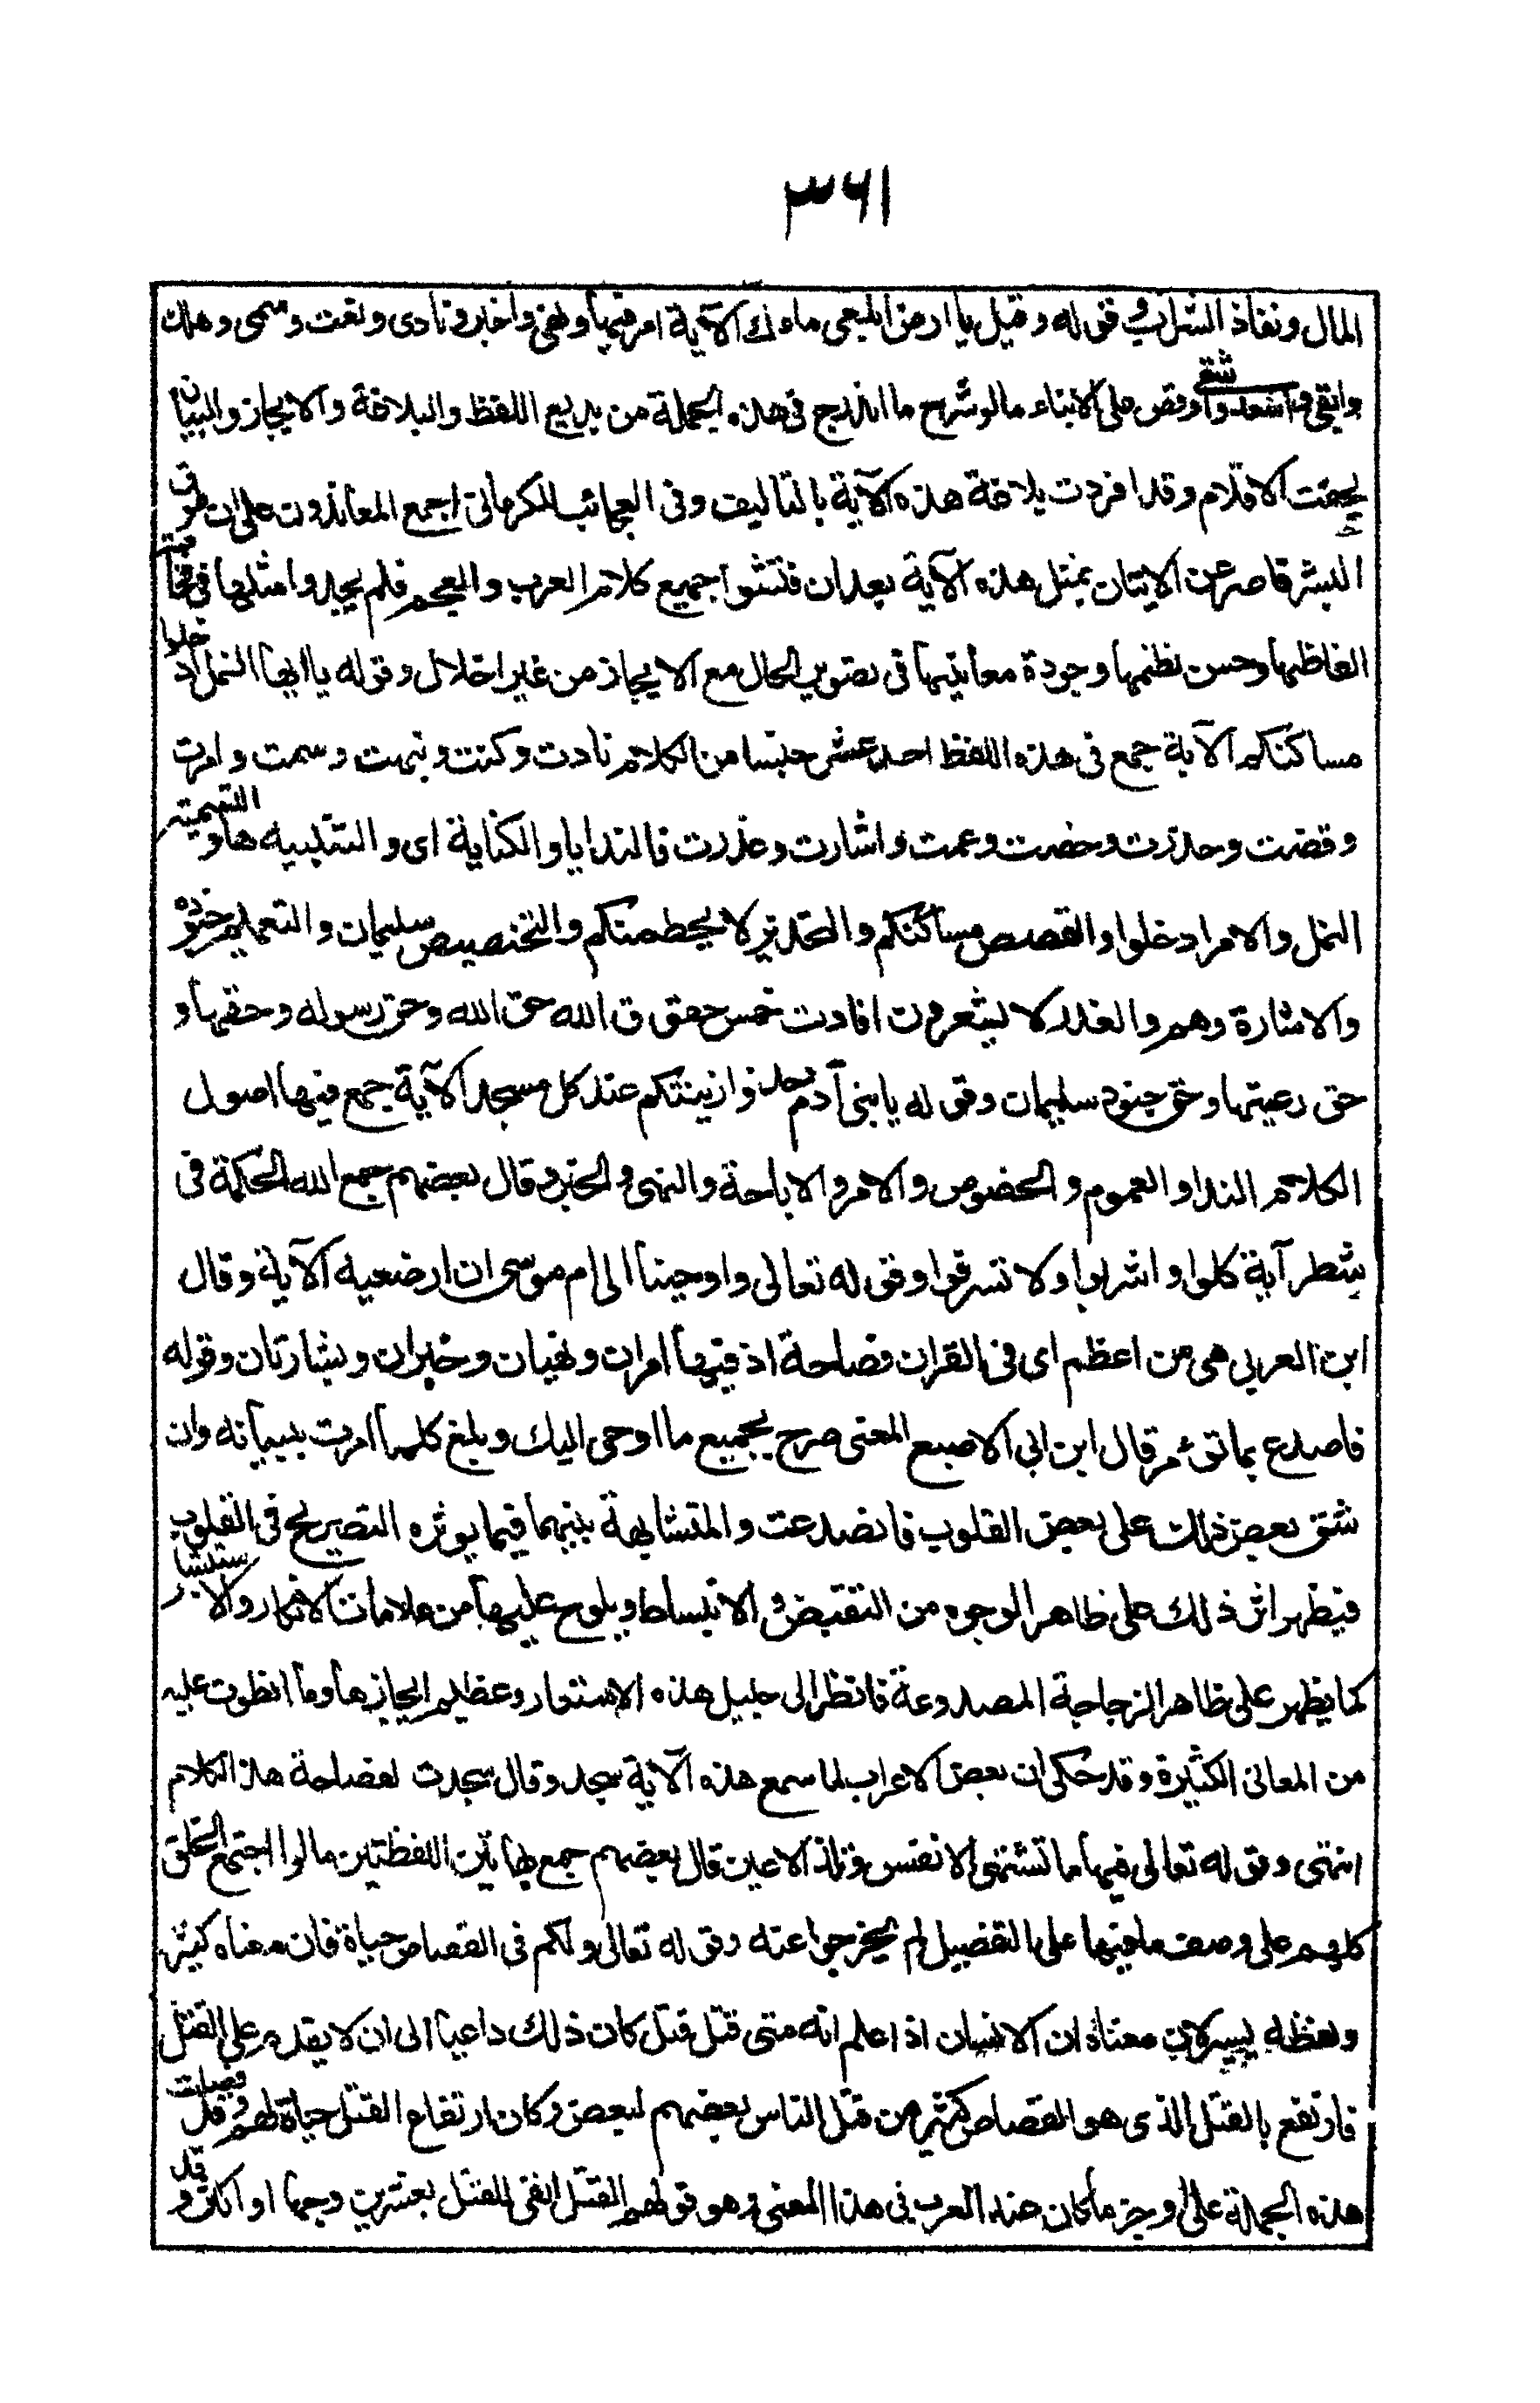 ٣٦١
المال ونفاذ الشراب وقوله وقيل يا ارض ابلعى ماءك الآية امر فيها ونهى واخبر ونادى ونعت وسمى وهلك
وابقى واسعد واشقى وقص على الانباء مالو شرح ما اندرج فى هذه الجملة من بديع اللفظ والبلاغة والايجاز والبيان
لجفت الاقلام وقد افردت بلاغة هذه الآية بالتاليف وفى العجائب للكرمانى اجمع المعاندون على ان طوق
البشر قاصر عن الاتيان بمثل هذه الآية بعد ان فتشوا جميع كلام العرب والعجم فلم يجدوا مثلها فى فخامة
الفاظها وحسن نظمها وجودة معانيها فى تصوير الحال مع الايجاز من غير اخلال وقوله يا ايها النمل ادخلوا
مساكنكم الآية جمع فى هذه اللفظ احد عشر جنسا من الكلام نادت وكنت ونبهت وسمت وامرت
وقصت وحذرت وخصت وعمت واشارت وعذرت فالندا يا والكناية اى والتنبيه ها والتسمية
النمل والامر ادخلوا والقصص مساكنكم والتحذير لا يحطمنكم والتخصيص سليمان والتعميم جنوده
والاشارة وهم والعذر لا يشعرون افادت خمس حقوق الله حق الله وحق رسوله وحقها و
حق رعيتها وحق جنود سليمان وقوله يا بنى آدم خذوا زينتكم عند كل مسجد الآية جمع فيها اصول
الكلام الندا والعموم والخصوص والامر والاباحة والنهى والخبر وقال بعضهم جمع الله الحكمة فى
شطر آية كلوا واشربوا ولا تسرفوا وقوله تعالى واوحينا الى ام موسى ان ارضعيه الآية وقال
ابن العربى هى من اعظم اى فى القران فصاحة اذ فيها امران ونهيان وخبران وبشارتان وقوله
فاصدع بما تؤمر قال ابن ابى الاصبع المعنى صرح بجميع ما اوحى اليك وبلغ كلما امرت ببيانه وان
شق بعض ذلك على بعض القلوب فانصدعت والمتشابهة بينهما فيما يوثره التصريح فى القلوب
فيظهر اثر ذلك على ظاهر الوجوه من التقبض والانبساط ويلوح عليها من علامات الانكار والاستبشار
كما يظهر على ظاهر الزجاجة المصدوعة فانظر الى جليل هذه الاستعار وعظيم ايجازها وما انطوت عليه
من المعانى الكثيرة وقد حكى ان بعض الاعراب لما سمع هذه الآية سجد وقال سجدت لفصاحة هذ الكلام
انتهى وقوله تعالى فيها ما تشتهى الانفس وتلذ الاعين قال بعضهم جمع بهاتين اللفظتين ما لوا اجتمع الخلق
كلهم على وصف ما فيها على التفصيل لم يخرجوا عنه وقوله تعالى ولكم فى القصاص حياة فان معناه كثير
ولفظه يسير لان معناه ان الانسان اذا علم انه متى قتل قتل كان ذلك داعيا الى ان لا يقدم على القتل
فارتفع بالقتل الذى هو القصاص كثير من قتل الناس بعضهم لبعض وكان ارتفاع القتل حياة لهم وقد فضلت
هذه الجملة على اوجز ما كان عند العرب فى هذا المعنى وهو قولهم القتل انفى للقتل بعشرين وجها او اكثر وقد